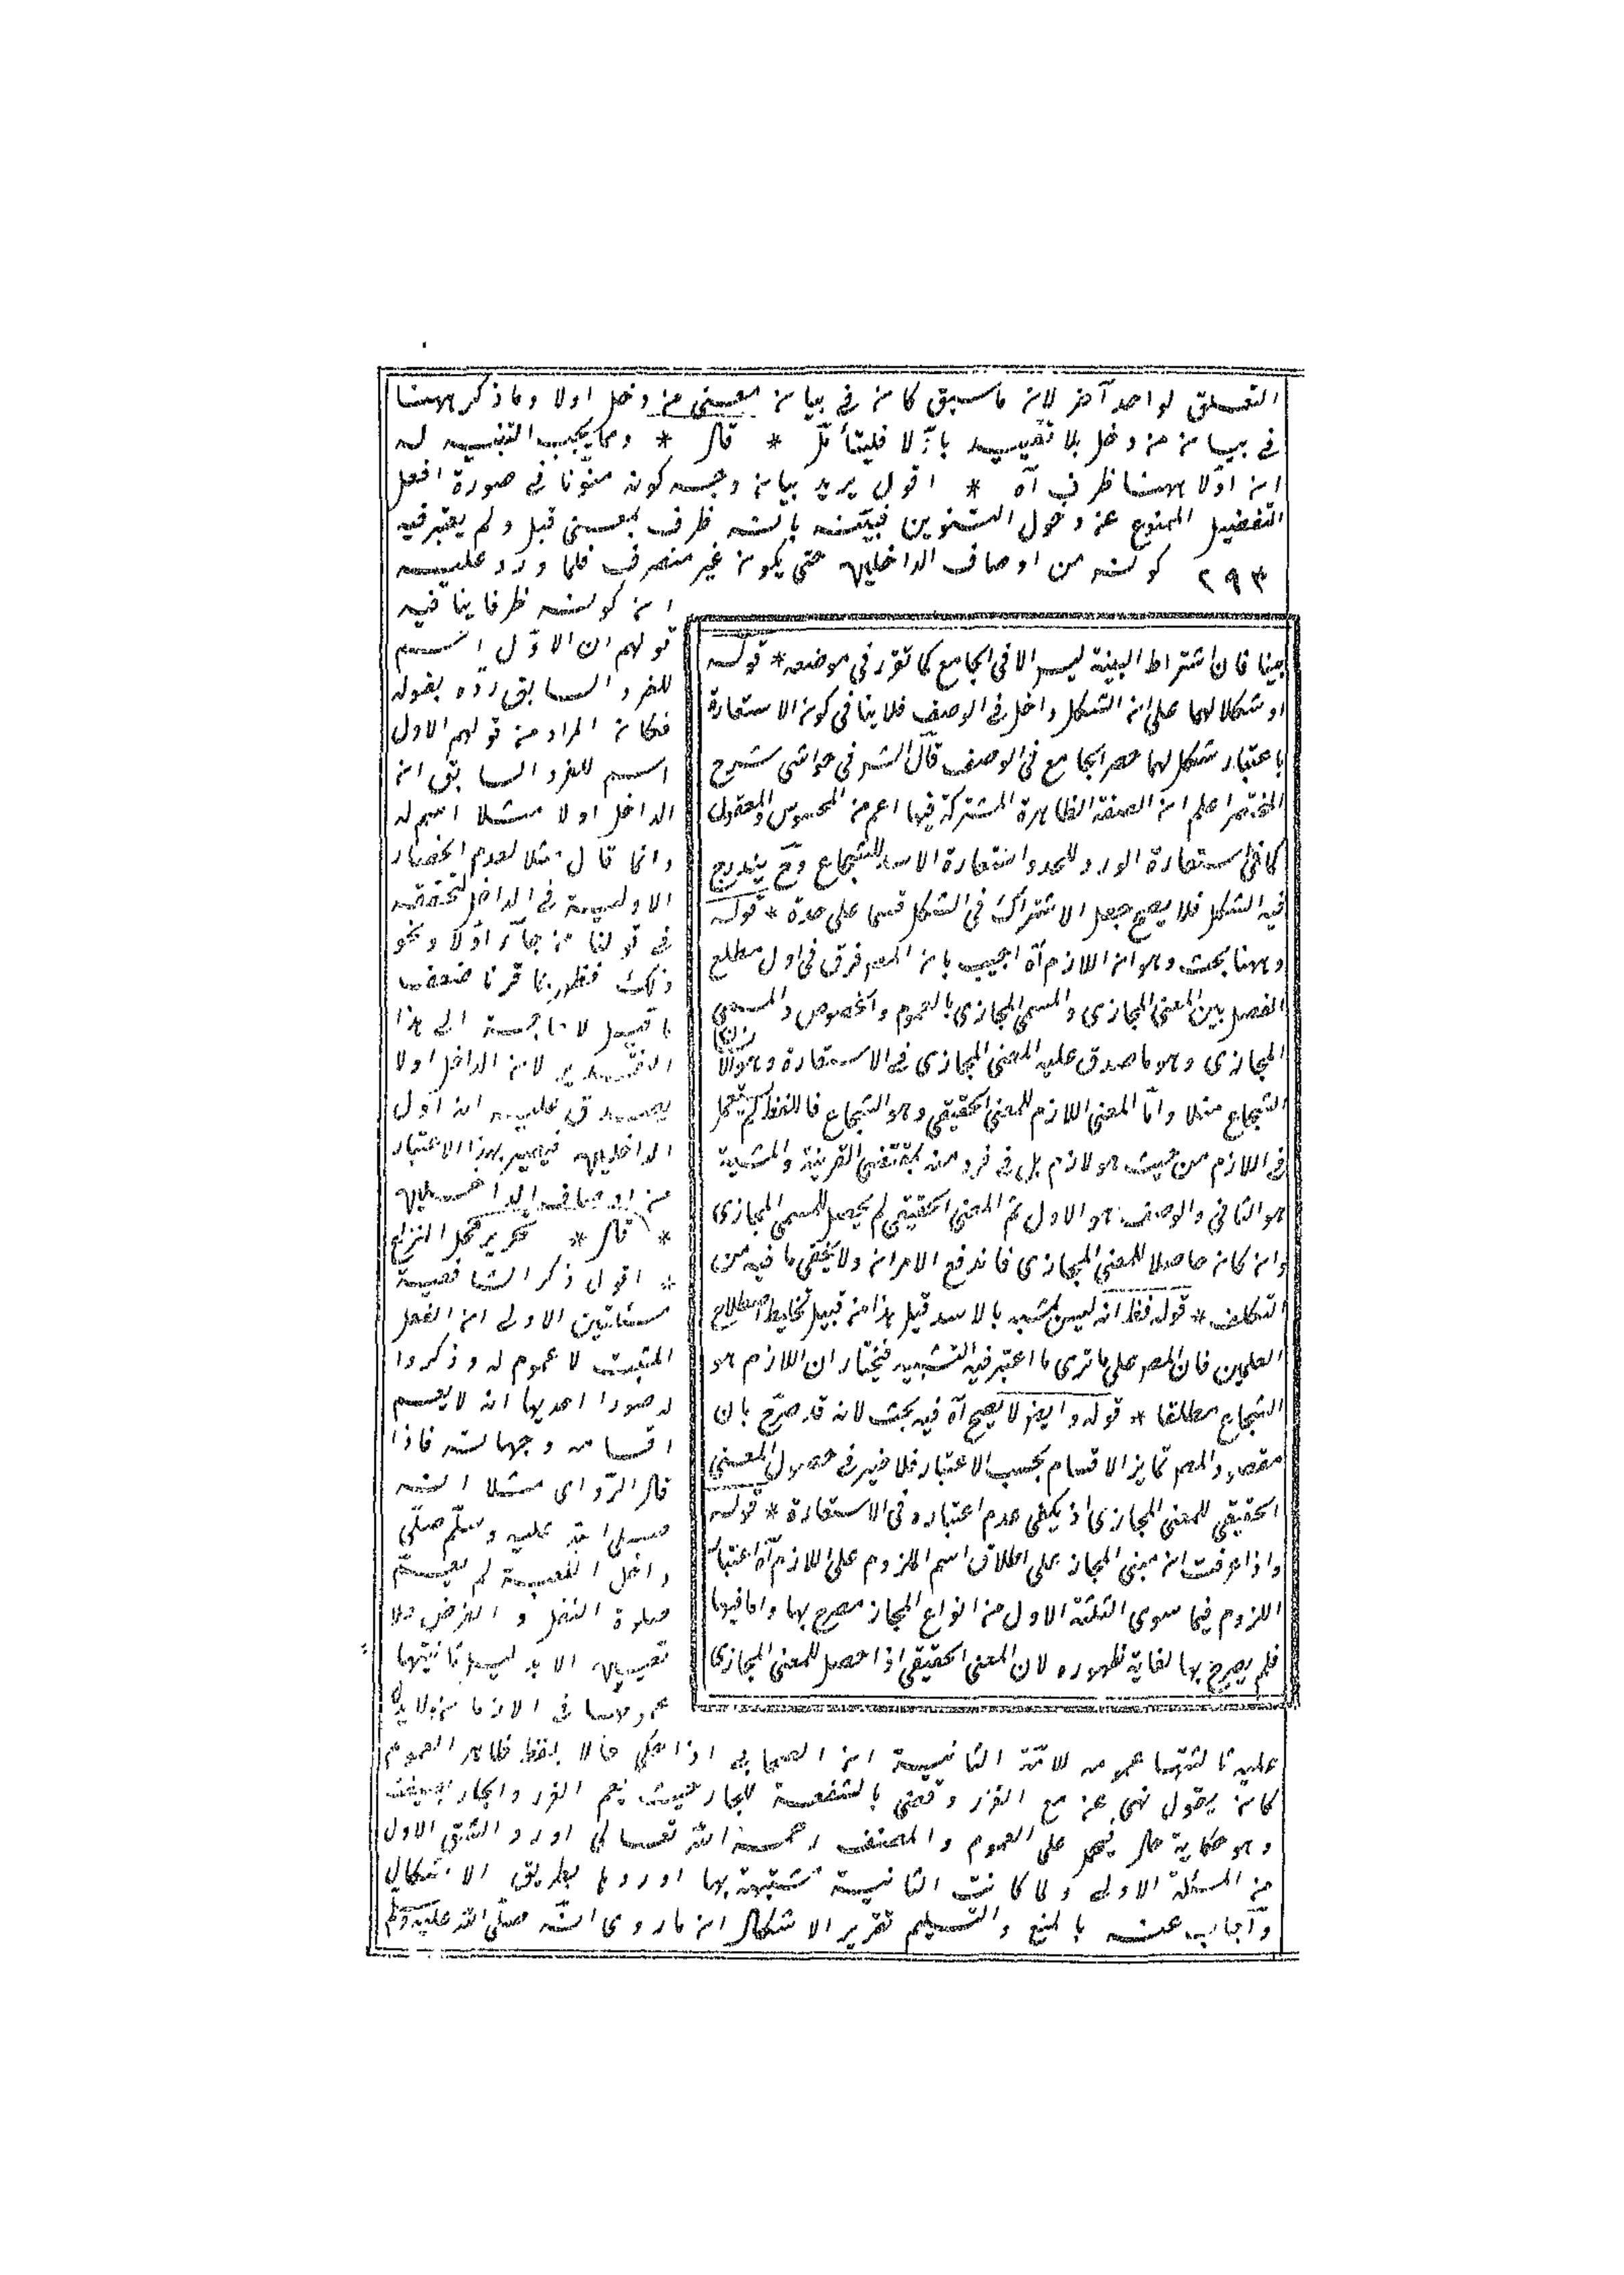 التعلق لواحد آخر لان ما سبق كان فى بيان معنى من دخل اولا وما ذكر ههنا
فى بيان من دخل بلا تقييد باولا فليتأمل * قال * ومما يجب التنبيه له
ان اولا ههنا ظرف آه * اقول يريد بيان وجه كونه منونا فى صورة افعل
التفضيل الممنوع عن دخول التنوين فبينه بانه ظرف بمعنى قبل ولم يعتبر فيه
٢٩٣ كونه من اوصاف الداخلين حتى يكون غير منصرف فلما ورد عليه
ان كونه ظرفا ينافيه
قولهم ان الاول اسم
للفرد السابق رده بقوله
فكان المراد من قولهم الاول
اسم للفرد السابق ان
الداخل اولا مثلا اسم له
وانما قال مثلا لعدم انحصار
الاولية فى الداخل لتحققه
فى قولنا من جاء اولا ونحو
ذلك فظهر بما قررنا ضعف
ما قيل لا حاجة الى هذا
التقييد لان الداخل اولا
يصدق عليه انه اول
الداخلين فيصير بهذا الاعتبار
من اوصاف الداخلين
* قال * تحرير محل النزاع
* اقول ذكر الشافعية
مسئلتين الاولى ان الفعل
المثبت لا عموم له وذكروا
له صورا احديها انه لا يعم
اقسامه وجهاته فاذا
قال الراوى مثلا انه
صلى الله عليه وسلم صلى
داخل الكعبة لم يعم
صلوة النفل والفرض فلا
تعيين الا بدليل ثانيتها
عمومها فى الازمان لا يدل
عليه ثالثتها عمومه للامة الثانية ان الصحابى اذا حكى حالا بلفظ ظاهر العموم
كان يقول نهى عن بيع الغرر وقضى بالشفعة للجار حيث يعم الغرر والجار
وهو حكاية حال يحمل على العموم والمصنف رحمه الله تعالى اورد الشق الاول
من المسئلة الاولى ولما كانت الثانية مشتبهة بها اوردها بطريق الاشكال
واجاب عنه بالمنع والتسليم تقرير الاشكال ان ما روى انه صلى الله عليه وسلم
بينا فان اشتراط البينة ليس الا فى الجامع كما تقرر فى موضعه * قوله
او شكلا لهما على ان الشكل داخل فى الوصف فلا ينافى كون الاستعارة
باعتبار شكل لهما حصر الجامع فى الوصف قال الشر فى حواشى شرح
المختصر اعلم ان الصفة الظاهرة المشتركة فيها اعم من المحسوس والمعقول
كما فى استعارة الورد للخد واستعارة الاسد للشجاع وح يندرج
فيه الشكل فلا يصح جعل الاشتراك فى الشكل قسما على حدة * قوله
وههنا بحث وهو ان اللازم آه اجيب بان المص فرق فى اول مطلع
الفصل بين المعنى المجازى والمسمى المجازى بالعموم والخصوص والمسمى
المجازى وهو ما صدق عليه المعنى المجازى فى الاستعارة وهو الانسان
الشجاع مثلا واما المعنى اللازم للمعنى الحقيقى وهو الشجاع فاللفظ لم يستعمل
فى اللازم من حيث هو لازم بل فى فرد منه بمقتضى القرينة والمشبه
هو الثانى والوصف هو الاول ثم المعنى الحقيقى لم يحصل للمسمى المجازى
وان كان حاصلا للمعنى المجازى فاندفع الامران ولا يخفى ما فيه من
التكلف * قوله فظ انه ليس بمشبه بالاسد قيل هذا من قبيل تخليط اصطلاح
العلمين فان المص على ما ترى ما اعتبر فيه التشبيه فيختار ان اللازم هو
الشجاع مطلقا * قوله وايض لا يصح آه فيه بحث لانه قد صرح بان
مقصود المص تمايز الاقسام بحسب الاعتبار فلا ضير فى حصول المعنى
الحقيقى للمعنى المجازى اذ يكفى عدم اعتباره فى الاستعارة * قوله
واذا عرفت ان مبنى المجاز على اطلاق اسم الملزوم على اللازم آه اعتبار
اللزوم فيما سوى الثلثة الاول من انواع المجاز مصرح بها واما فيها
فلم يصرح بها لغاية ظهوره لان المعنى الحقيقى اذا حصل للمعنى المجازى